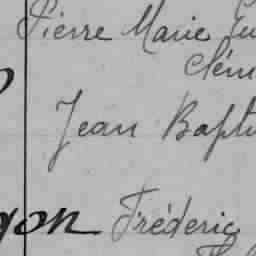 Pierre Marie
Clém
Jean Bapti
gon Fréderic